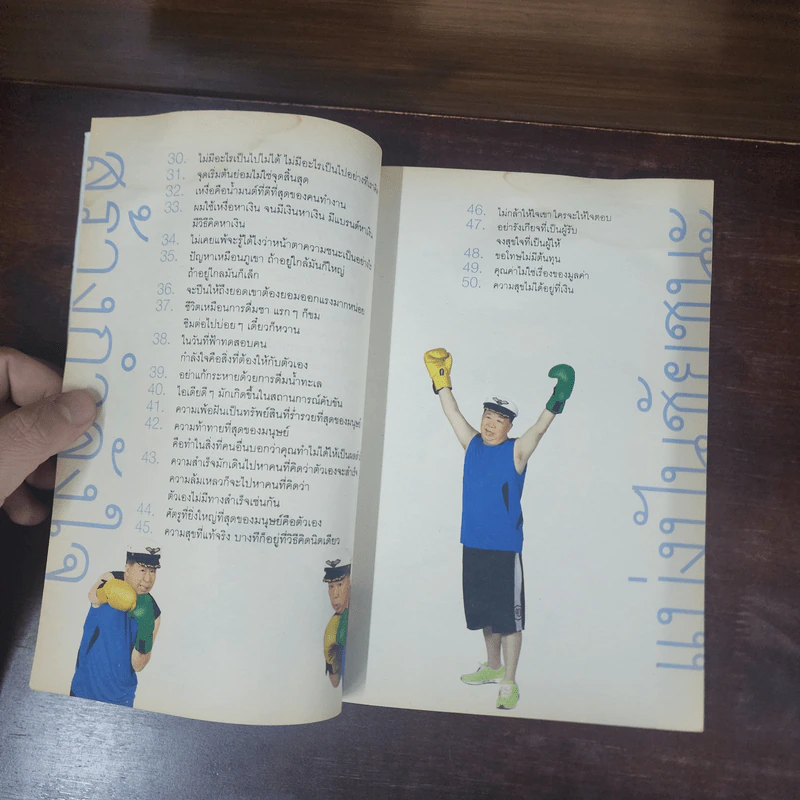 สร้างกำลังใจ
30. ไม่มีอะไรเป็นไปไม่ได้ ไม่มีอะไรเป็นไปอย่างที่
31. จุดเริ่มต้นย่อมไม่ใช่จุดสิ้นสุด
32. เหงื่อคือน้ำมนต์ที่ดีที่สุดของคนทำงาน
33. ผมใช้เหงื่อหาเงิน จนมีเงินหาเงิน มีแบรนด์หาเงิน
มีวิธีคิดหาเงิน
34. ไม่เคยแพ้จะรู้ได้ไงว่าหน้าตาความชนะเป็นอย่างไร
35. ปัญหาเหมือนภูเขา ถ้าอยู่ใกล้มันก็ใหญ่
ถ้าอยู่ไกลมันก็เล็ก
36. จะปีนให้ถึงยอดเขาต้องยอมออกแรงมากหน่อย
37. ชีวิตเหมือนการดื่มชา แรก ๆ ก็ขม
ชิมต่อไปบ่อย ๆ เดี๋ยวก็หวาน
38. ในวันที่ฟ้าทดสอบคน
กำลังใจคือสิ่งที่ต้องให้กับตัวเอง
39. อย่าแก้กระหายด้วยการดื่มน้ำทะเล
40. ไอเดียดี ๆ มักเกิดขึ้นในสถานการณ์คับขัน
41. ความเพ้อฝันเป็นทรัพย์สินที่ร่ำรวยที่สุดของมนุษย์
42. ความท้าทายที่สุดของมนุษย์
คือทำในสิ่งที่คนอื่นบอกว่าคุณทำไม่ได้ให้เป็นผลสำเร็จ
43. ความสำเร็จมักเดินไปหาคนที่คิดว่าตัวเองจะสำเร็จ
ความล้มเหลวก็จะไปหาคนที่คิดว่า
ตัวเองไม่มีทางสำเร็จเช่นกัน
44. ศัตรูที่ยิ่งใหญ่ที่สุดของมนุษย์คือตัวเอง
45. ความสุขที่แท้จริง บางทีก็อยู่ที่วิธีคิดนิดเดียว
46. ไม่กล้าให้ใจเขา ใครจะให้ใจตอบ
47. อย่ารังเกียจที่เป็นผู้รับ
จงสุขใจที่เป็นผู้ให้
48. ขอโทษไม่มีต้นทุน
49. คุณค่าไม่ใช่เรื่องของมูลค่า
50. ความสุขไม่ได้อยู่ที่เงิน